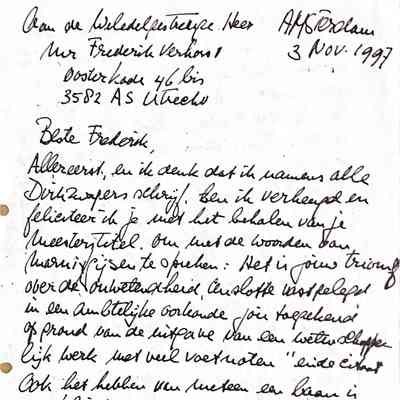 Aan de Weledelgestrenge Heer
Amsterdam
Mr Frederik Verhorst
3 Nov. 1997
Oosterkade 46 bis
3582 AS Utrecht
Beste Frederik,
Allereerst, en ik denk dat ik namens alle
schrijf, ben ik verheugd en
feliciteer ik je met het behalen van je
meesterstitel. Om met de woorden van
te spreken: Het is jouw triomf
over de onwetendheid, tenslotte vastgelegd
in een ambtelijke oorkonde jou toegekend
op grond van de uitgave van een wetenschappe
lijk werk met veel voetnoten "einde
Ook het hebben van meteen een baan is